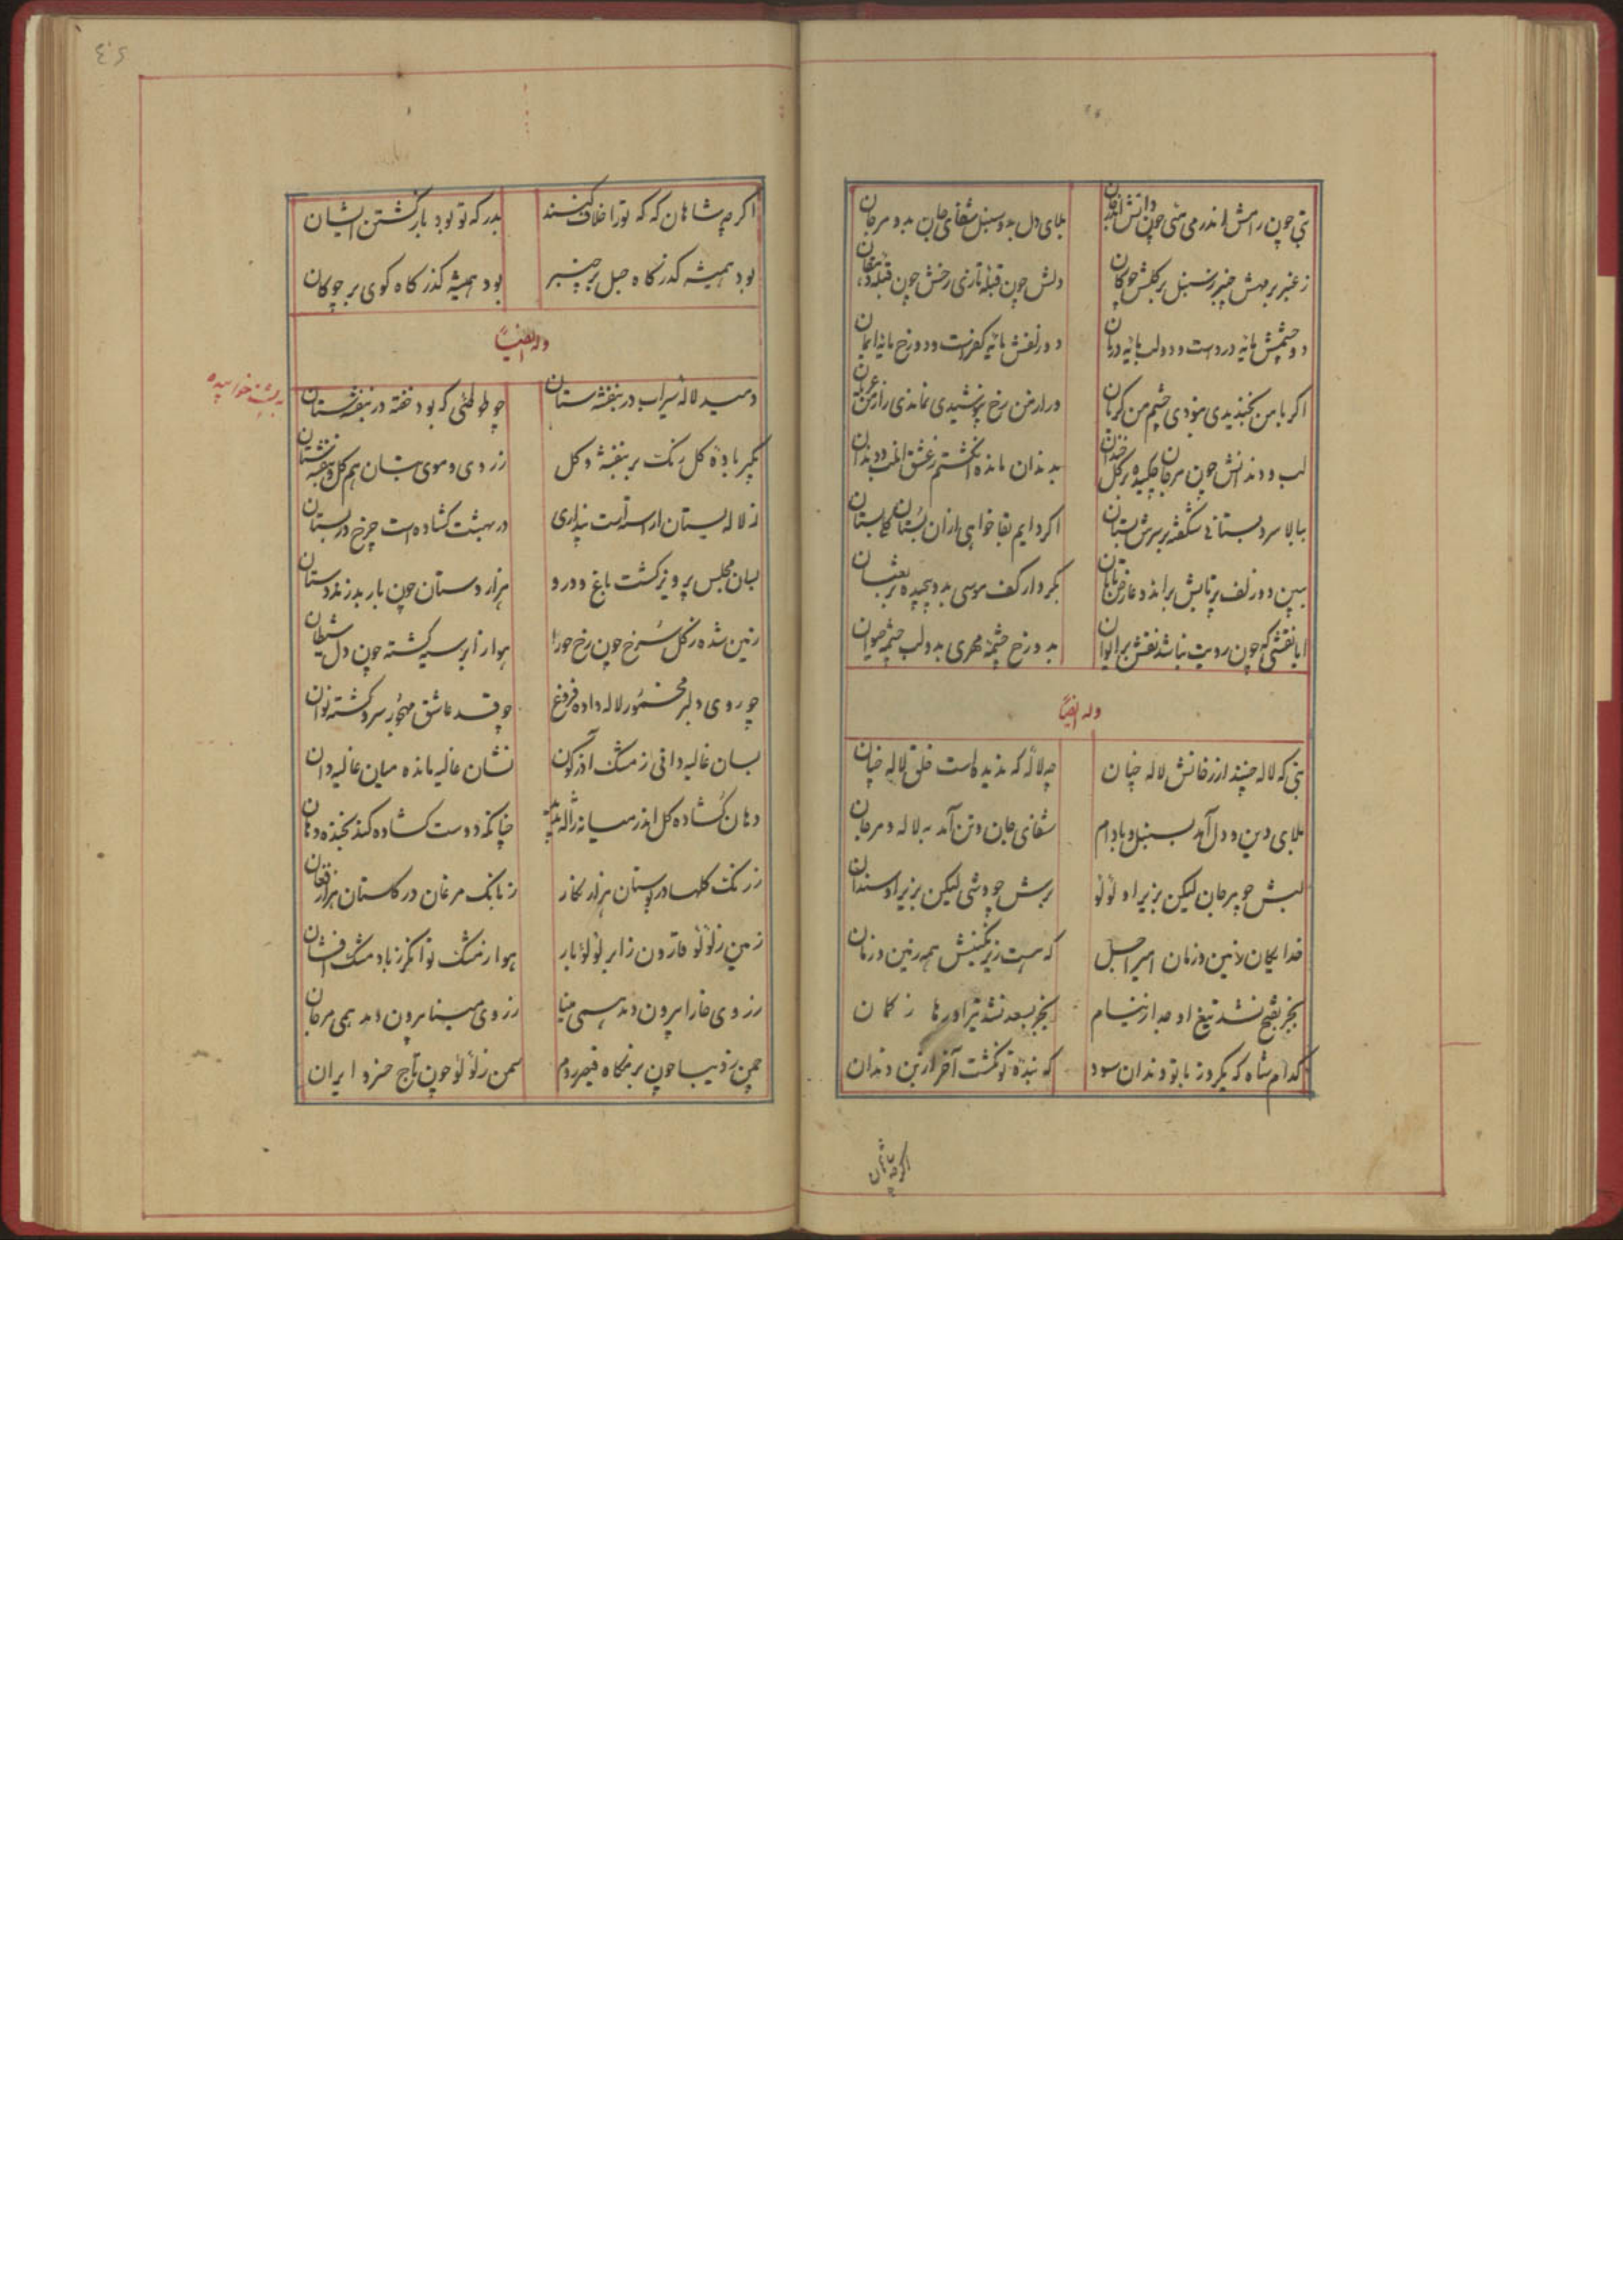 بتی چون رامش اندر می منی چون دانش اندر جان
بلای دل بدو سنبل شفای جان بدو مرجان
ز عنبر بر مهش چنبر ز سنبل بر گلش چوکان
دلش چون قبلهٔ تازی رخش چون قبلهٔ دهقان
دو چشمش مایه دردست و دو لب مایه درمان
دو زلفش مایه کفرست و دو رخ مایه ایمان
اکر با من بخندیدی نبودی چشم من کریان
ور از من رخ نپوشیدی نماندی راز من عریان
لب و دندانش چون مرجان چکیده بر کل خندان
بدندان مانده انکشتم ز عشق آن لب و دندان
ببالا سرو بستانی شکفته بر سرش بستان
اکر دایم بقا خواهی از آن بستان کل بستان
ببین دو زلف پرتابش بر آن دو عارض تابان
بکردار کف موسی بدو پیچیده بر ثعبان
ایا نقشی که چون رویت نباشد نقش بر ایوان
بدو رخ چشمهٔ مهری بدو لب چشمه حیوان
وله ایضاً
بتی که لاله چنند از رخانش لاله چنان
چه لاله که ندیداست خلق لاله چنان
بلای دین و دل آمد بسنبل و بادام
شفای جان و تن آمد به لاله و مرجان
لبش چو مرجان لیکن بزیر او لؤلؤ
برش چو وشی لیکن بزیر او سندان
خدایکان زمین و زمان امیر اجل
که هست زیر نکینش همه زمین و زمان
بجز بفتح نشد تیغ او جدا ز نیام
بجز بسعد نشد تیر او رها ز کمان
کدام شاه که یکروز با تو دندان سود
که بندهٔ تو نکشت آخر از بن دندان
اکرچه شاهان
اکر چه شاهان که که تو را خلاف کنند
بدرکه تو بود بازکشتن ایشان
بود همیشه کذرکاه حبل بر چنبر
بود همیشه کذرکاه کوی بر چوکان
وله ایضاً
دمید لاله سیراب در بنفشه ستان
چو طوطئی که بود خفته در بنفشستان
خوابیده
بکیر بادهٔ کل رنک بر بنفشه و کل
ز روی و موی بتان هم کل و بنفشه ستان
ز لاله بستان آراسته است پنداری
در بهشت کشاده است چرخ در بستان
بسان مجلس پرویز کشت باغ و درو
هزار دستان چون باربد زند دستان
زمین شده ز کل سرخ چون رخ حورا
هوا ز ابر سیه کشته چون دل شیطان
چو روی دلبر مخمور لاله داده فروغ
چو قد عاشق مهجور سرو کشته نوان
بسان غالیه دانی ز مشک آذرکون
نشان غالیه مانده میان غالیه دان
دهان کشاده کل اندر میانه ژاله پدید
چنانکه دوست کشاده کند بخنده دهان
ز رنک کلها در بوستان هزار نکار
ز بانک مرغان در کلستان هزار فغان
زمین ز لؤلؤ قارون ز ابر لؤلؤ بار
هوا ز مشک توانکر ز باد مشک افشان
ز روی خارا بیرون دمد همی مینا
ز روی مینا بیرون دمد همی مرجان
چمن ز دیبا چون بزمکاه قیصر روم
سمن ز لؤلؤ چون تاج خسرو ایران